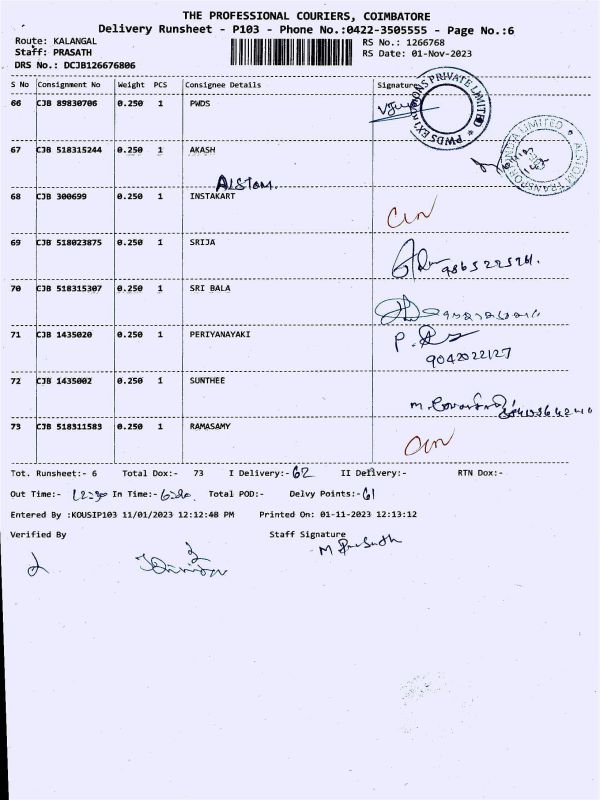 THE PROFESSIONAL COURIERS, COIMBATORE
Delivery Runsheet - P103 - Phone No.:0422-3505555 - Page No.:6
Route: KALANGAL
RS No.: 1266768
Staff: PRASATH
RS Date: 01-Nov-2023
DRS No.: DCJB126676806
S No Consignment No Weight PCS Consignee Details Signature
66 CJB 89830706 0.250 1 PWDS
67 CJB 518315244 0.250 1 AKASH
ALSTOM.
68 CJB 300699 0.250 1 INSTAKART
69 CJB 518023875 0.250 1 SRIJA
70 CJB 518315307 0.250 1 SRI BALA
71 CJB 1435020 0.250 1 PERIYANAYAKI
9042022127
72 CJB 1435002 0.250 1 SUNTHEE
73 CJB 518311583 0.250 1 RAMASAMY
Tot. Runsheet:- 6 Total Dox:- 73 I Delivery:- 62 II Delivery:- RTN Dox:-
Out Time:- In Time:- Total POD:- Delvy Points:- 61
Entered By :KOUSIP103 11/01/2023 12:12:48 PM Printed On: 01-11-2023 12:13:12
Verified By Staff Signature
M Prasath